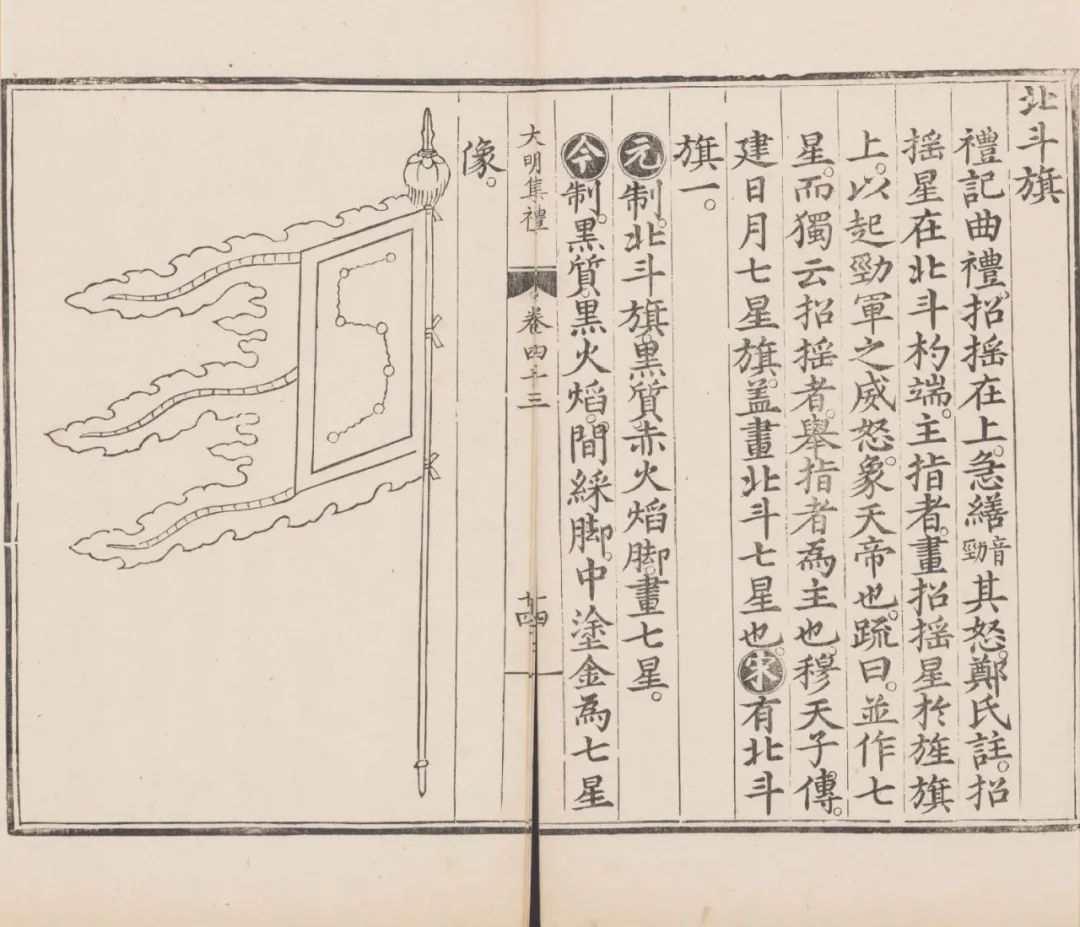 北斗旗
禮記曲禮。招揺在上。急繕音勁其怒。鄭氏註。招
揺星在北斗杓端。主指者。畫招揺星於旌旗
上。以起勁軍之威怒。象天帝也。䟽曰。並作七
星。而獨云招揺者。舉指者為主也。穆天子傳。
建日月七星旗。盖畫北斗七星也。宋有北斗
旗一。
元制。北斗旗。黒質。赤火焰脚。畫七星。
今制。黒質。黒火焰。間綵脚。中塗金為七星
大明集禮 卷四十三 十四
像。